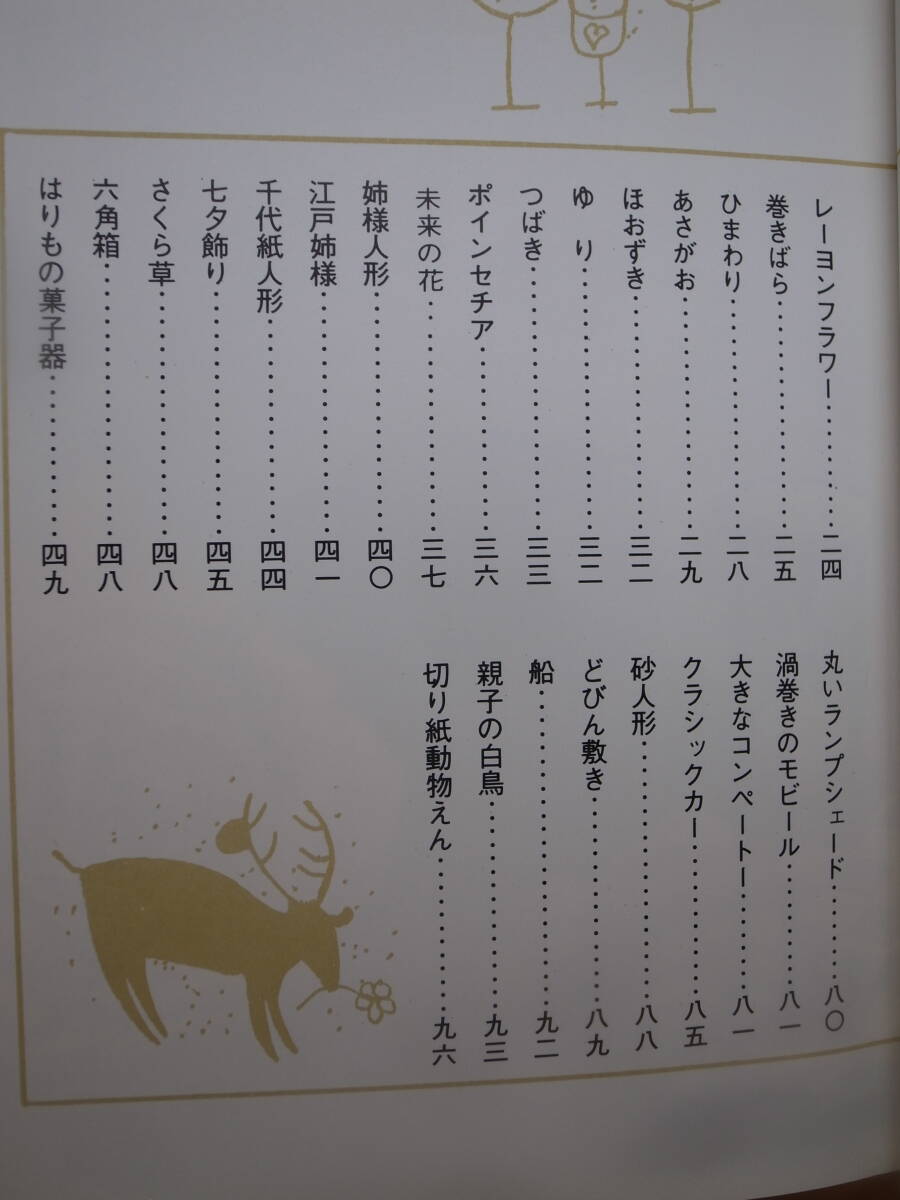 レーヨンフラワー…………二四
巻きばら…………二五
ひまわり…………二八
あさがお…………二九
ほおずき…………三二
ゆり…………三二
つばき…………三三
ポインセチア…………三六
未来の花…………三七
姉様人形…………四〇
江戸姉様…………四一
千代紙人形…………四四
七夕飾り…………四五
さくら草…………四八
六角箱…………四八
はりもの菓子器…………四九
丸いランプシェード…………八〇
渦巻きのモビール…………八一
大きなコンペートー…………八一
クラシックカー…………八五
砂人形…………八八
どびん敷き…………八九
船…………九二
親子の白鳥…………九三
切り紙動物えん…………九六